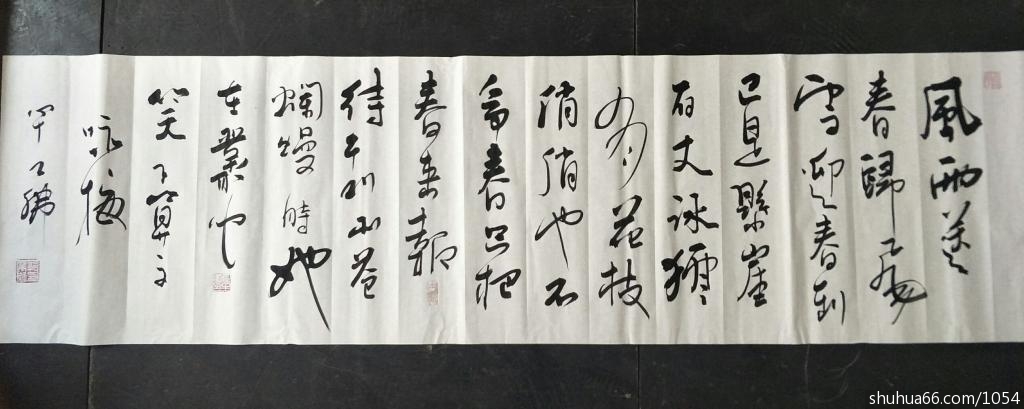 風雨送
春歸飛
雪迎春到
已是懸崖
百丈冰猶
有花枝
俏俏也不
爭春只把
春来報
待到山花
爛熳時她
在叢中
笑卜算子
咏梅
shuhua66.com/1054